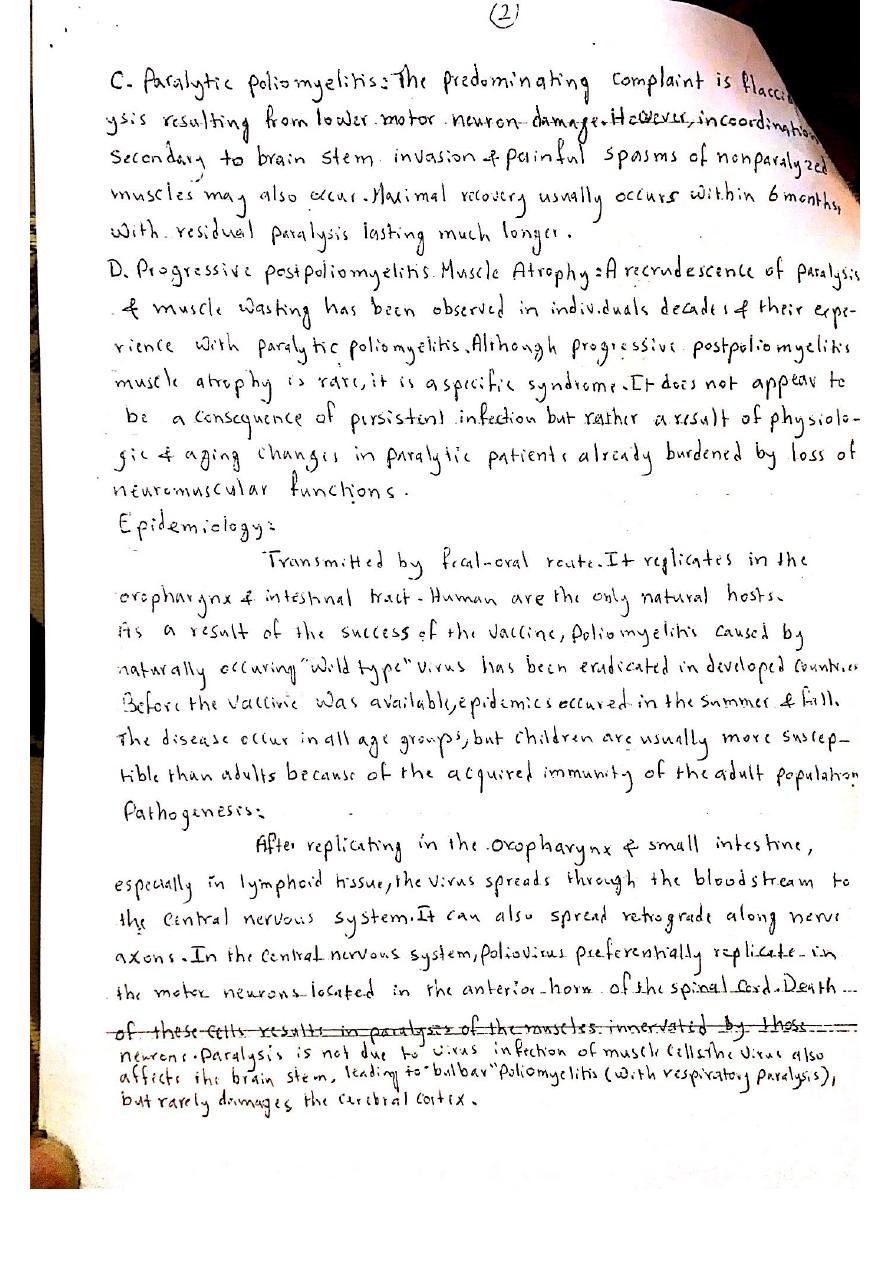 (2)
C. Paralytic poliomyelitis: The predominating complaint is flacci
ysis resulting from lower motor neuron damage. However, incoordination
Secondary to brain stem invasion & painful spasms of nonparalyzed
muscles may also occur. Maximal recovery usually occurs within 6 months,
with residual paralysis lasting much longer.
D. Progressive postpoliomyelitis Muscle Atrophy: A recrudescence of paralysis
& muscle wasting has been observed in individuals decades & their expe-
rience with paralytic poliomyelitis. Although progressive postpoliomyelitis
muscle atrophy is rare, it is a specific syndrome. It does not appear to
be a consequence of persistent infection but rather a result of physiolo-
gic & aging changes in paralytic patients already burdened by loss of
neuromuscular functions.
Epidemiology:
Transmitted by fecal-oral route. It replicates in the
oropharynx & intestinal tract. Human are the only natural hosts.
As a result of the success of the vaccine, poliomyelitis caused by
naturally occuring "wild type" virus has been eradicated in developed countries
Before the vaccine was available, epidemics occured in the summer & fall.
The disease occur in all age groups, but children are usually more suscep-
tible than adults because of the acquired immunity of the adult population
Pathogenesis:
After replicating in the oropharynx & small intestine,
especially in lymphoid tissue, the virus spreads through the bloodstream to
the central nervous system. It can also spread retrograde along nerve
axons. In the central nervous system, poliovirus preferentially replicate in
the motor neurons located in the anterior horn of the spinal cord. Death
of these cells results in paralysis of the muscles innervated by those
neurons. Paralysis is not due to virus infection of muscle cells. The virus also
affects the brain stem, leading to "bulbar" poliomyelitis (with respiratory paralysis),
but rarely damages the cerebral cortex.